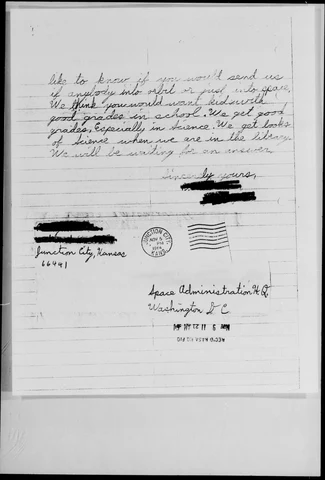 like to know if you would send us
if anybody into orbit or just into space.
We think you would want kids with
good grades in school. We get good
grades. Especially in Science. We get books
of Science when we are in the library.
We will be waiting for an answer.
Sincerely yours,
Junction City, Kansas
66441
JUNCTION CITY,
NOV 5
PM
KANS
Space Administration H.Q.
Washington D C
NOV 9 11 21 AM
REC'D NASA HQ